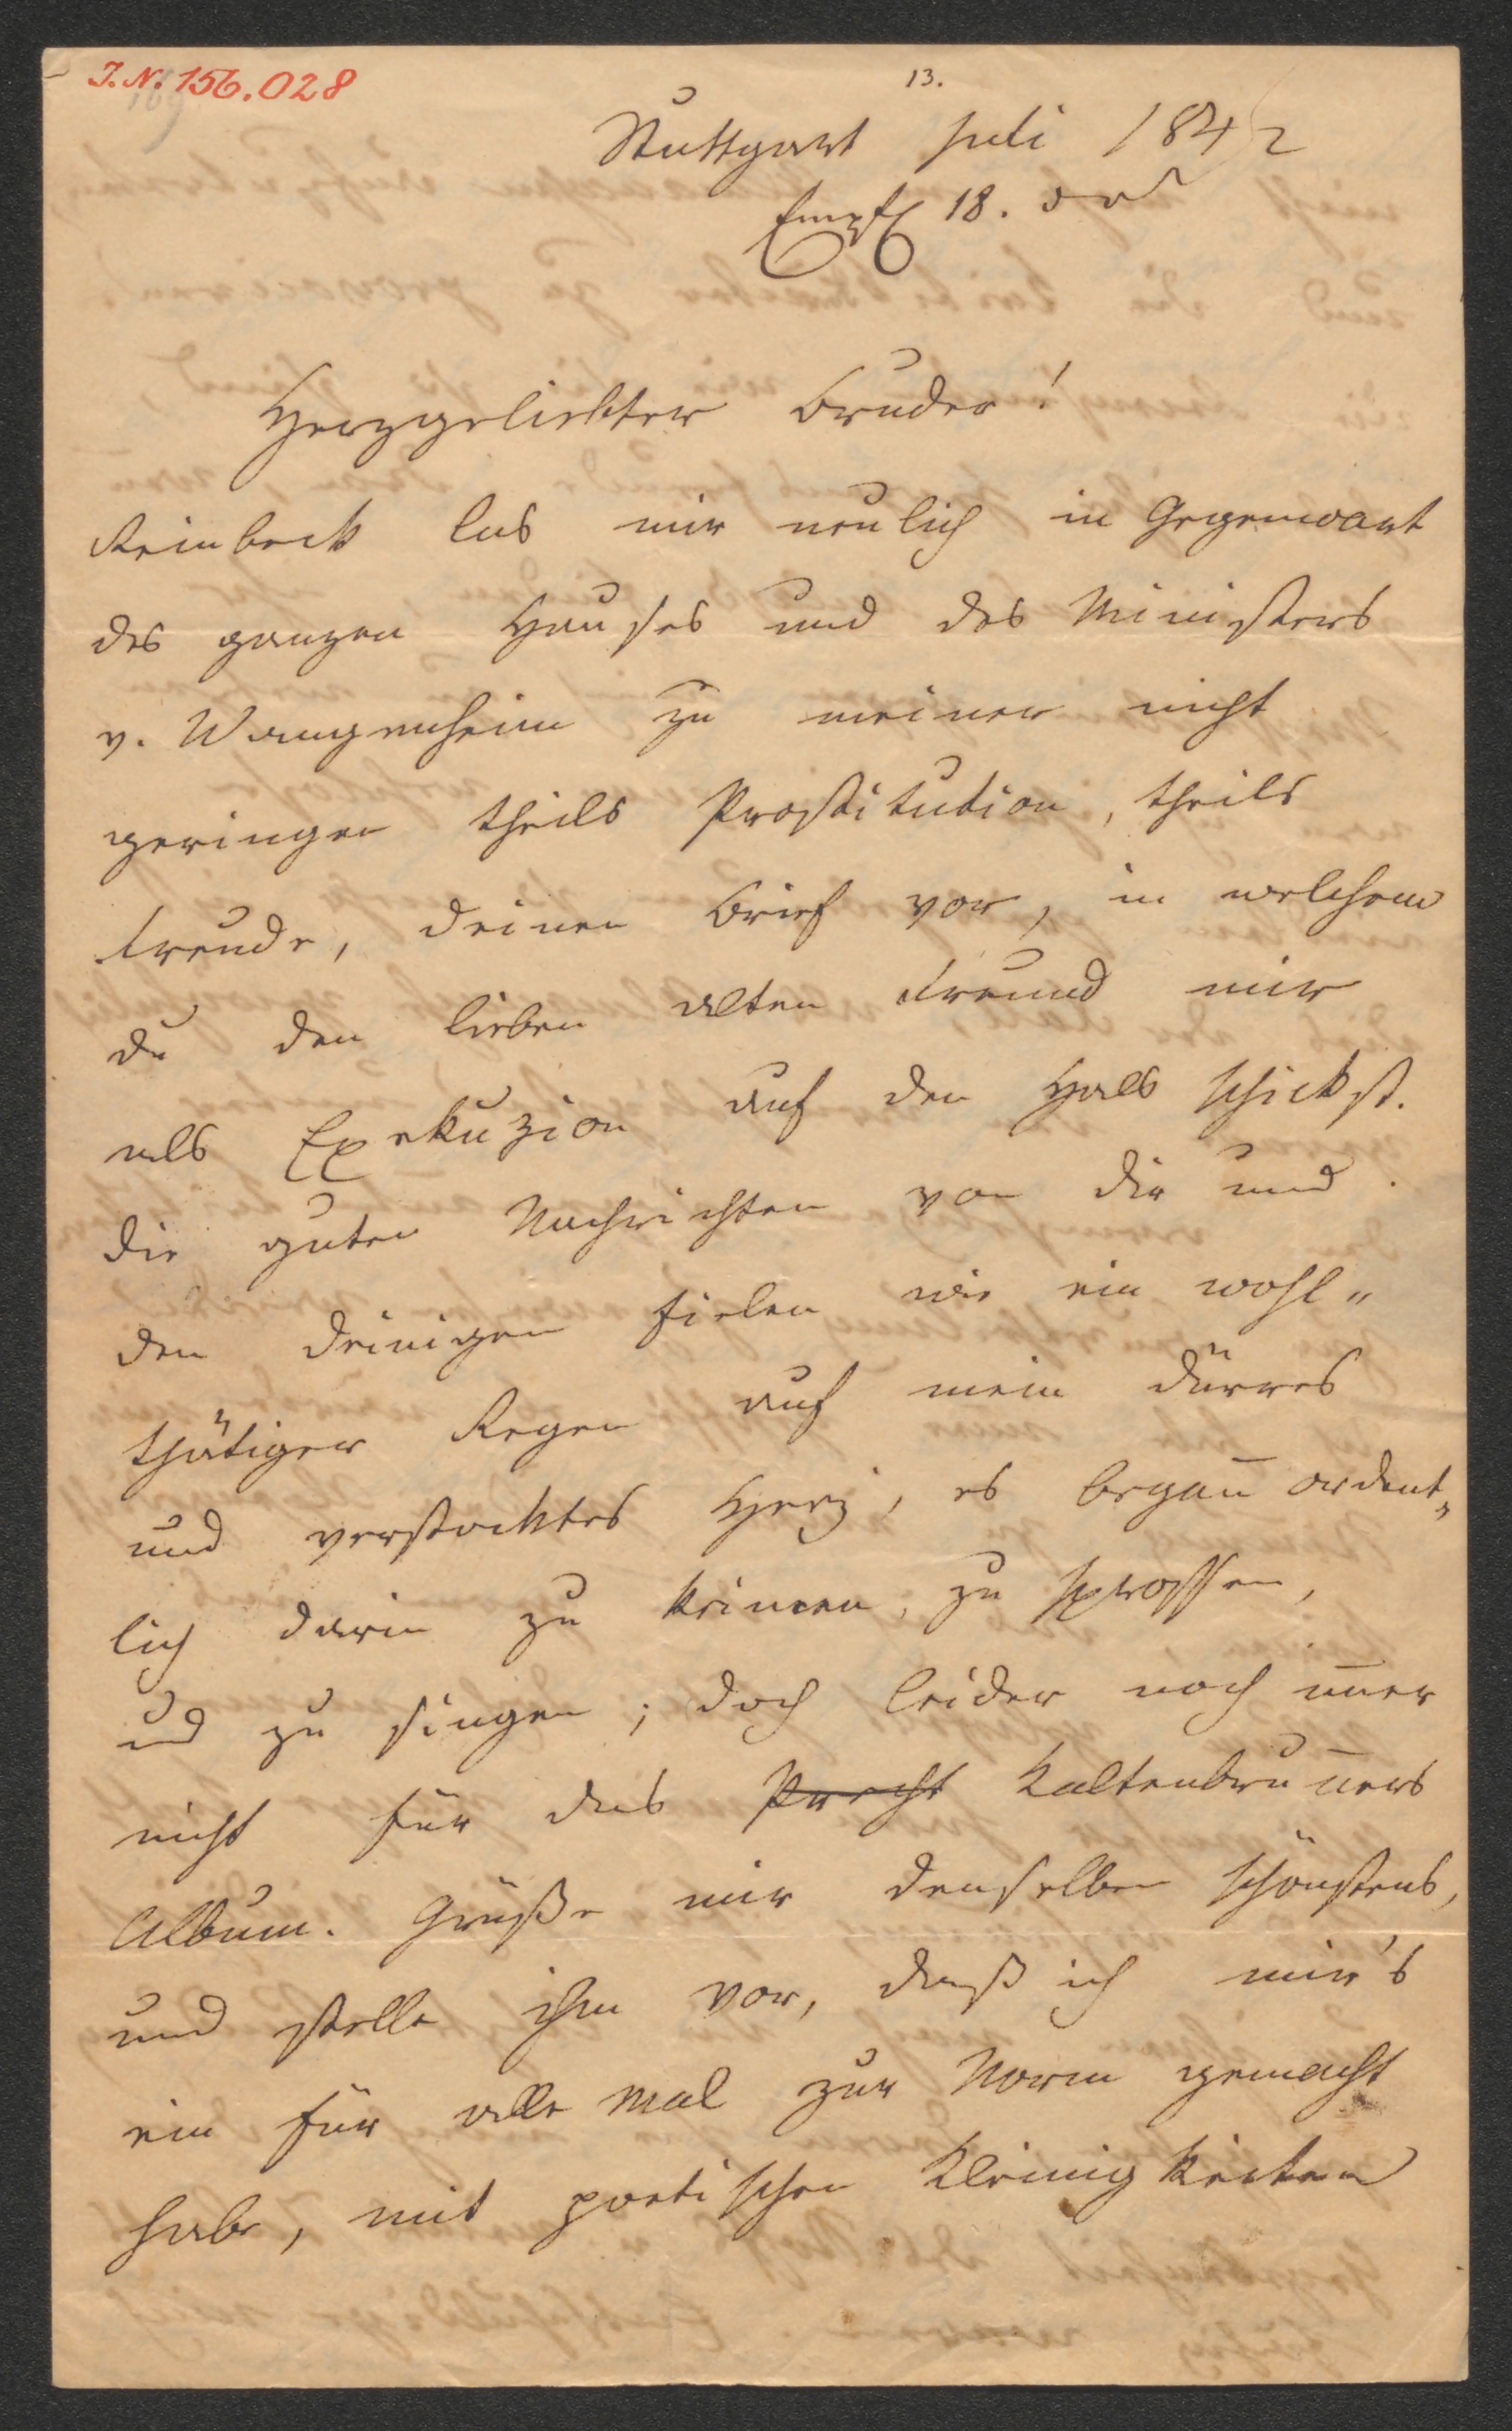 I.N. 156.028
13.
Stuttgart Juli 1842
Empf 18.
Herzgeliebter Bruder!
Reinbeck las mir neulich in Gegenwart
des ganzen Hauses und des Ministers
v. Wangenheim zu meiner nicht
geringen theils Prostitution, theils
Freude, deinen Brief vor, in welchem
du den lieben alten Freund mir
als Exekuzion auf den Hals schickst.
Die guten Nachrichten von dir und
den deinigen fielen wie ein wohl-
thätiger Regen auf mein dürres
und verstocktes Herz, es begann̄ ordent-
lich darin zu keimen, zu sprossen,
und zu singen; doch leider noch im̄er
nicht für das Pracht Kaltenbrun̄ers
Album. Grüße mir denselben schönstens,
und stelle ihm vor, daß ich mir's
ein für alle Mal zur Norm gemacht
habe, mit poetischen Kleinigkeiten